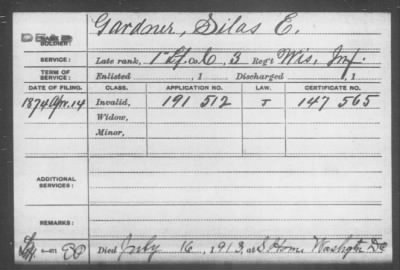 DEAD
NAME OF SOLDIER: Gardner, Silas E.
SERVICE: Late rank, 1" Lt. Co. C, 3 Reg't Wis. Inf.
TERM OF SERVICE: Enlisted , 1 Discharged , 1
DATE OF FILING. CLASS. APPLICATION NO. LAW. CERTIFICATE NO.
1874 Apr. 14 Invalid, 191 512 J 147 565
Widow,
Minor,
ADDITIONAL SERVICES:
REMARKS:
Died July 16, 1913, at S Home Washgtn DC